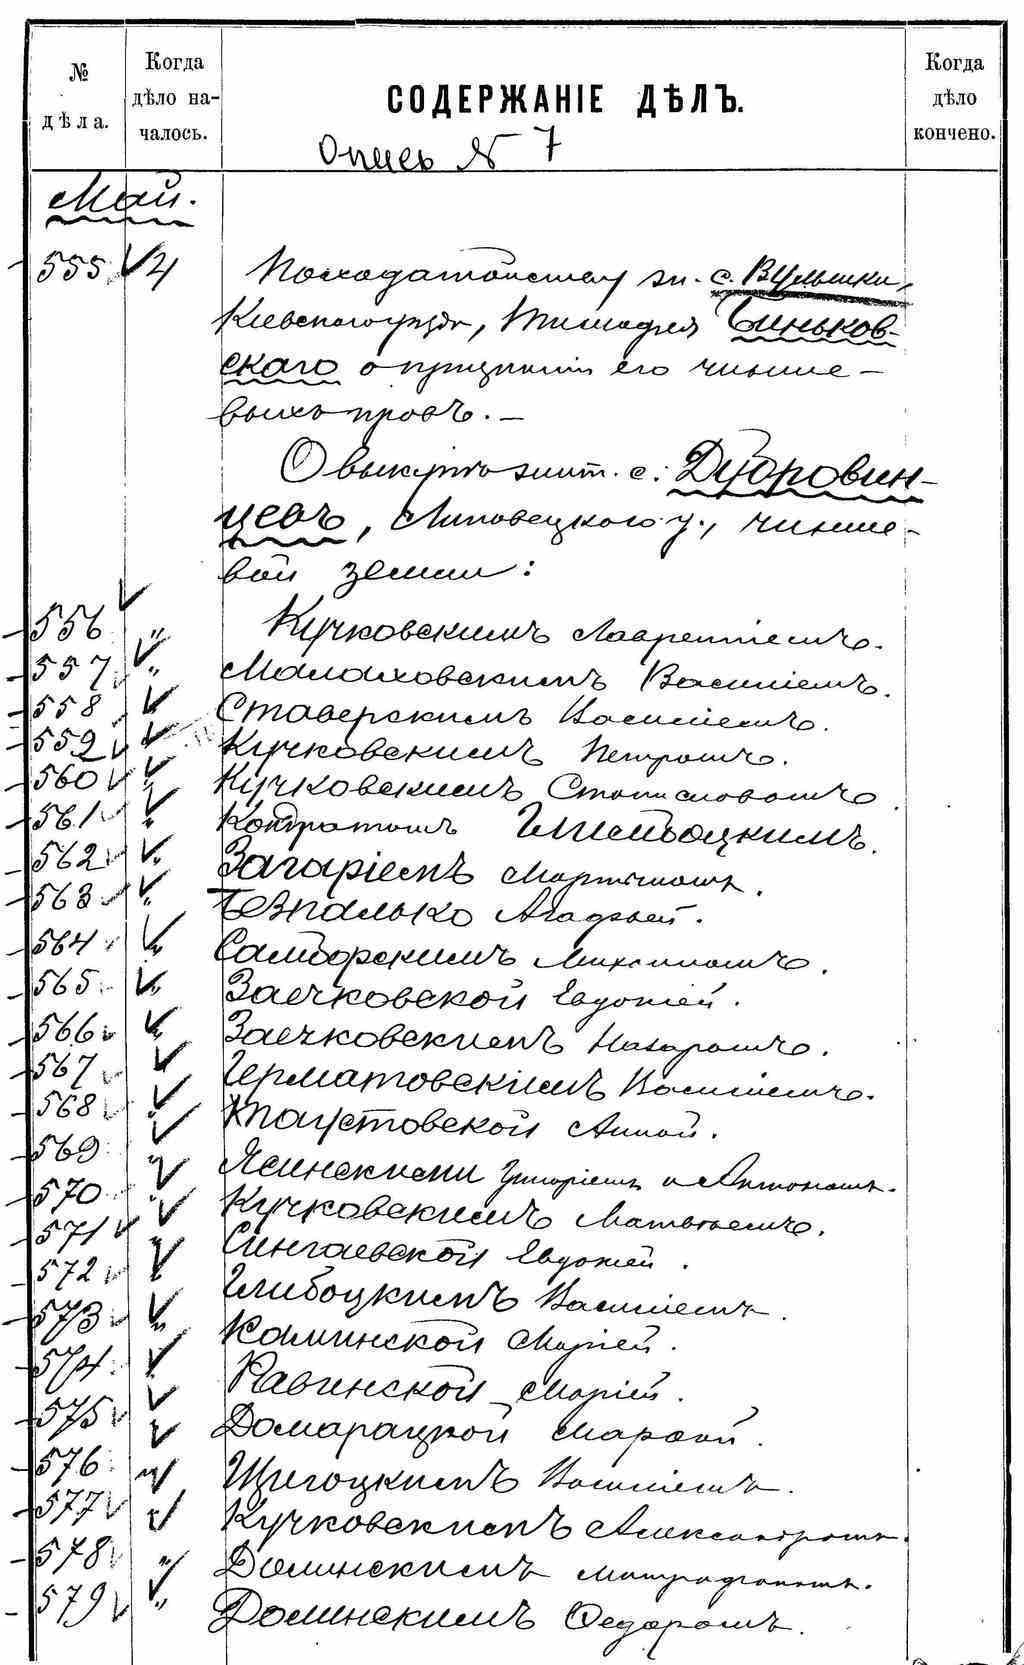 № дѣла.
Когда дѣло началось.
СОДЕРЖАНІЕ ДѢЛЪ.
Когда дѣло кончено.
Опись № 7
Май.
555 4 По ходатайству жит. с. Вульшки,
Кіевскаго уѣзда, Тимофея Биньков-
скаго о признаніи его чинше-
выхъ правъ. –
О выкупѣ жит. с. Дубровин-
цевъ, Липовецкого у., чинше-
вой земли:
556 " Кучковскимъ Лаврентіемъ.
557 " Малаховскимъ Василіемъ.
558 " Ставерскимъ Василіемъ.
559 " Кучковскимъ Петромъ.
560 " Кучковскимъ Станиславомъ.
561 " Кондратомъ
562 " Загаріемъ Мартыномъ.
563 " Безпалько Агафьей.
564 " Самборскимъ Михаиломъ.
565 " Заечковской Евдокіей.
566 " Заечковскимъ Назаромъ.
567 " Германовскимъ Василіемъ.
568 " Хпаустовской Анной.
569 " Ясинскими Григоріемъ и Антономъ.
570 " Кучковскимъ Матвѣемъ.
571 " Сингаевской Евдокіей.
572 " Глибоцкимъ Василіемъ.
573 " Каминской Маріей.
574 " Равинской Маріей.
575 " Домарацкой Марфой.
576 " Щигоцкимъ Василіемъ.
577 " Кучковскимъ Александромъ.
578 " Долинскимъ Митрофаномъ.
579 " Долинскимъ Федоромъ.